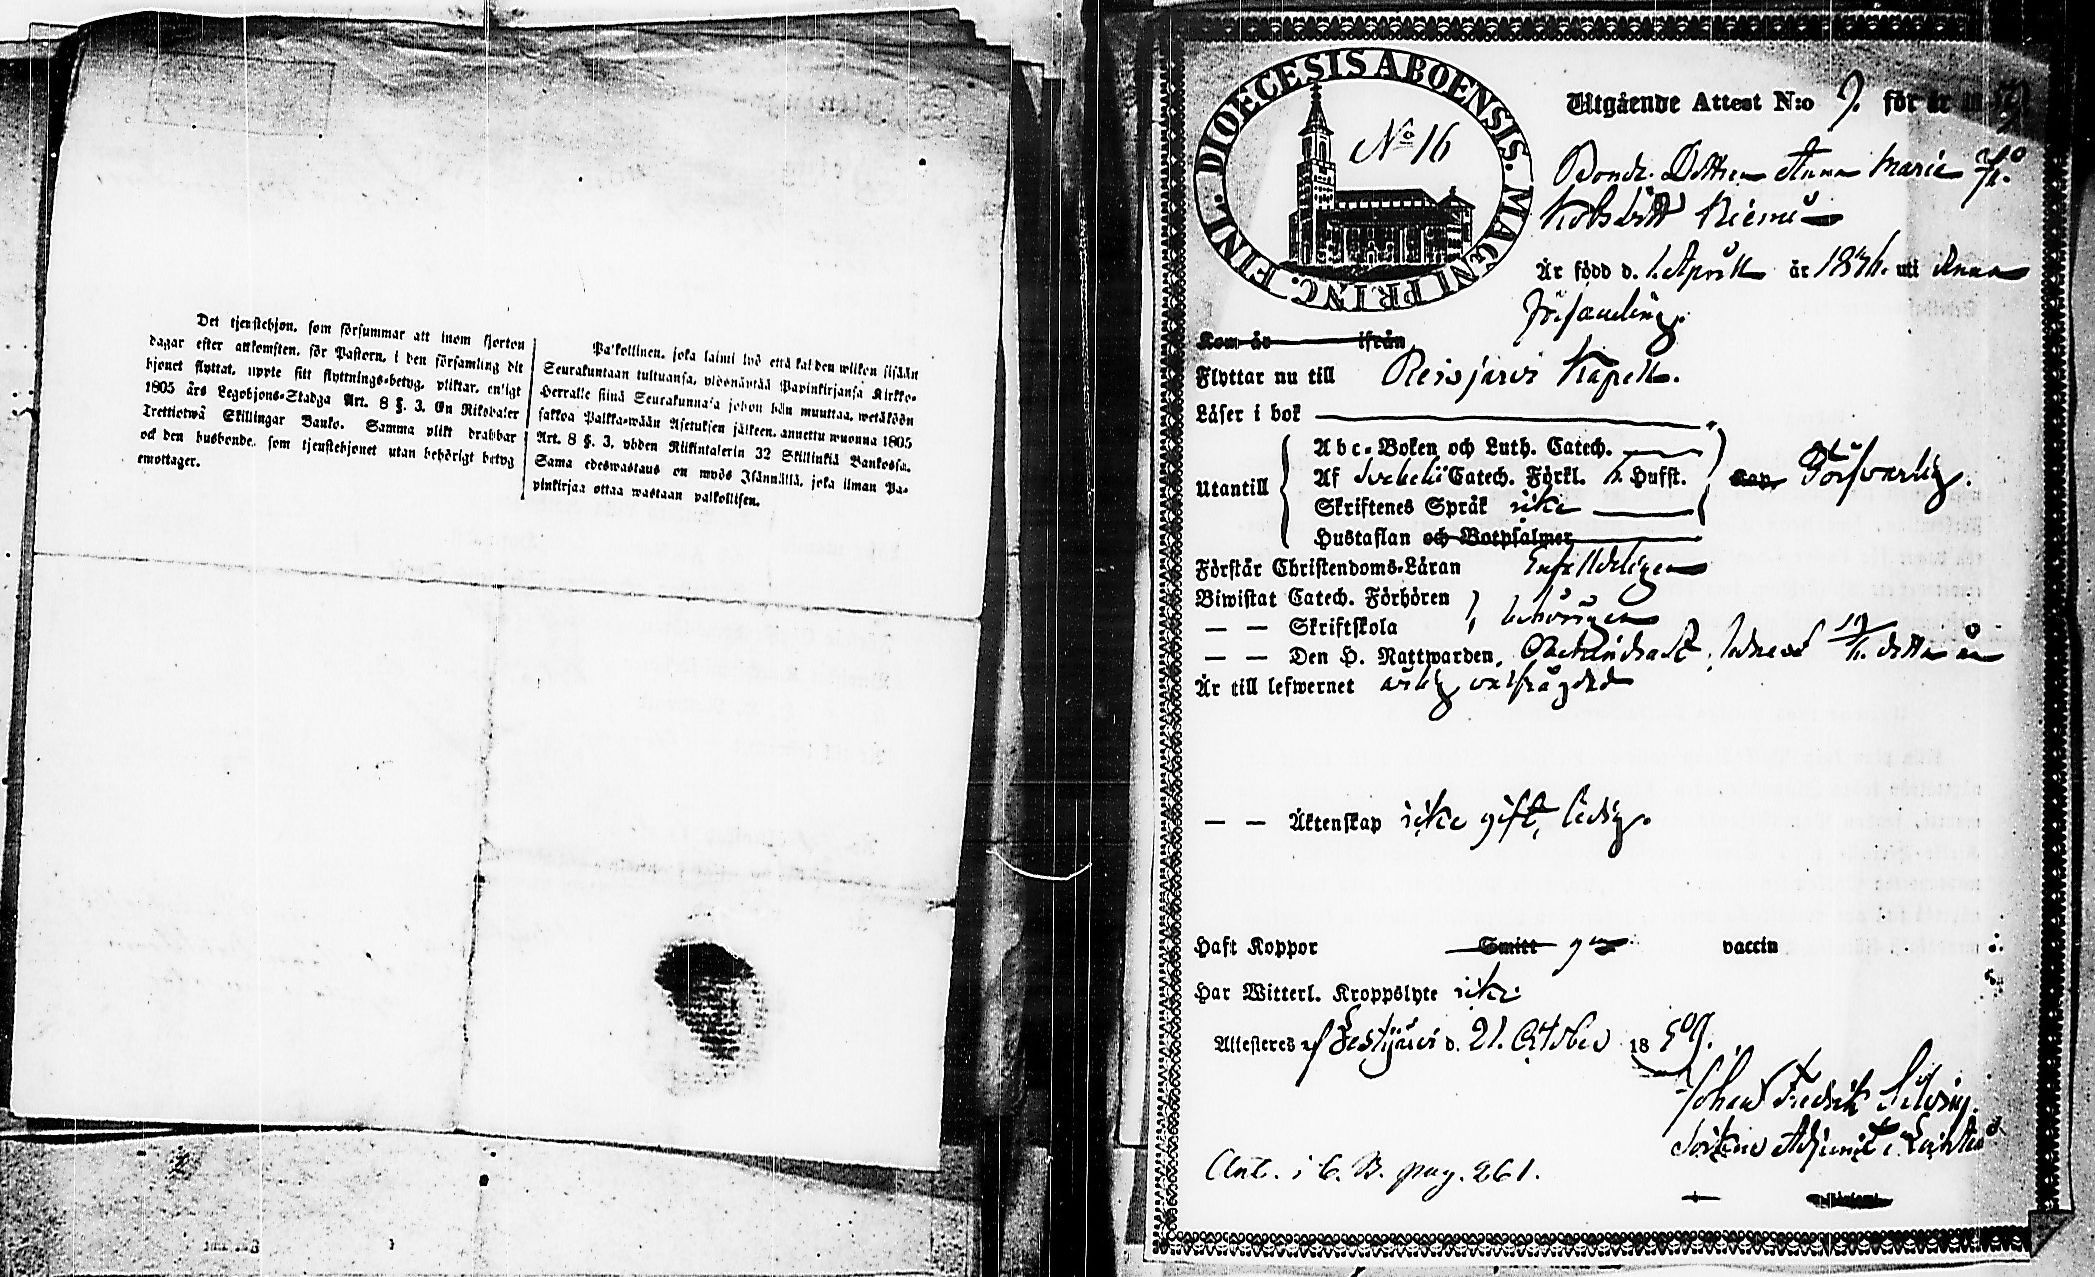 Det tjenstehjon, som försummar att inom fjorton
dagar efter ankomsten, för Pastorn, i den församling dit
hjonet flyttat, uppte sitt flyttnings-betyg, pliktar, enligt
1805 års Legohjons-Stadga Art. 8 §. 3. En Riksdaler
Trettiotwå Skillingar Banko. Samma plikt drabbar
ock den husbonde, som tjenstehjonet utan behörigt betyg
emottager.
Palkollinen, joka laimi lyö että kahden wiikon sisään
Seurakuntaan tultuansa, ylösnäyttää Papinkirjansa Kirkko-
Herralle siinä Seurakunnasa johon hän muuttaa, wetäköön
sakkoa Palkka-wään Asetuksen jälkeen, annettu wuonna 1805
Art. 8 §. 3, yhden Riikintalerin 32 Skillinkiä Bankossa.
Sama edeswastaus on myös Isännällä, joka ilman Pa-
pinkirjaa ottaa wastaan palkollisen.
DIOECESIS ABOENSIS. MAGNI PRINC. FINL.
No 16
Utgående Attest N:o 9. för år
Bonde Dottren Anna Maria
Är född d. 1. April år 1836. uti denna
församling.
Kom år ifrån
Flyttar nu till Reisjärvi Kapell.
Läser i bok
Abc-Boken och Luth. Catech.
Utantill Af Svebelii Catech. Förkl. Hufst. Försvarlig.
Skriftenes Språk icke
Hustaflan och Botpsalmer
Förstår Christendoms-Läran Enfaldeligen
Biwistat Catech. Förhören
— — Skriftskola behörigen
— — Den H. Nattwarden, Obehindrad, detta år
Är till lefwernet ärlig välfrägdad
— — Äktenskap icke gift, ledig.
Haft Koppor Smitt vaccin
Har Witterl. Kroppslyte icke
Attesteres af Lestijärvi d. 21. October 1859.
Johan Fredrik
Adjunct i
Ant. i C. B. pag. 261.